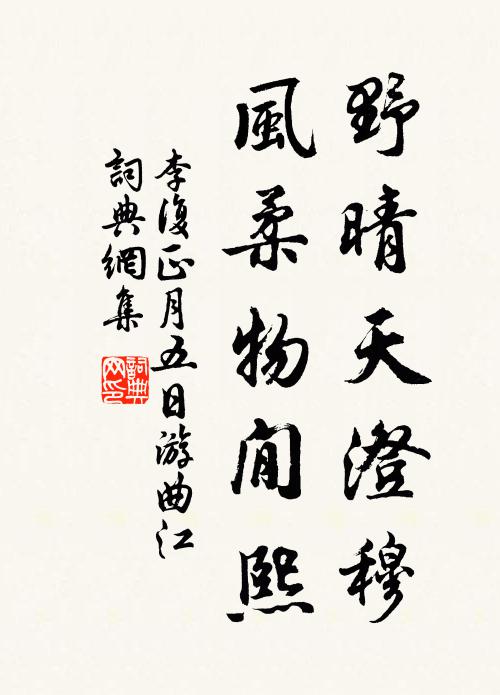 野晴天澄穆
風柔物閒熙
李復正月五日游曲江
詞典網集
詞典
网印